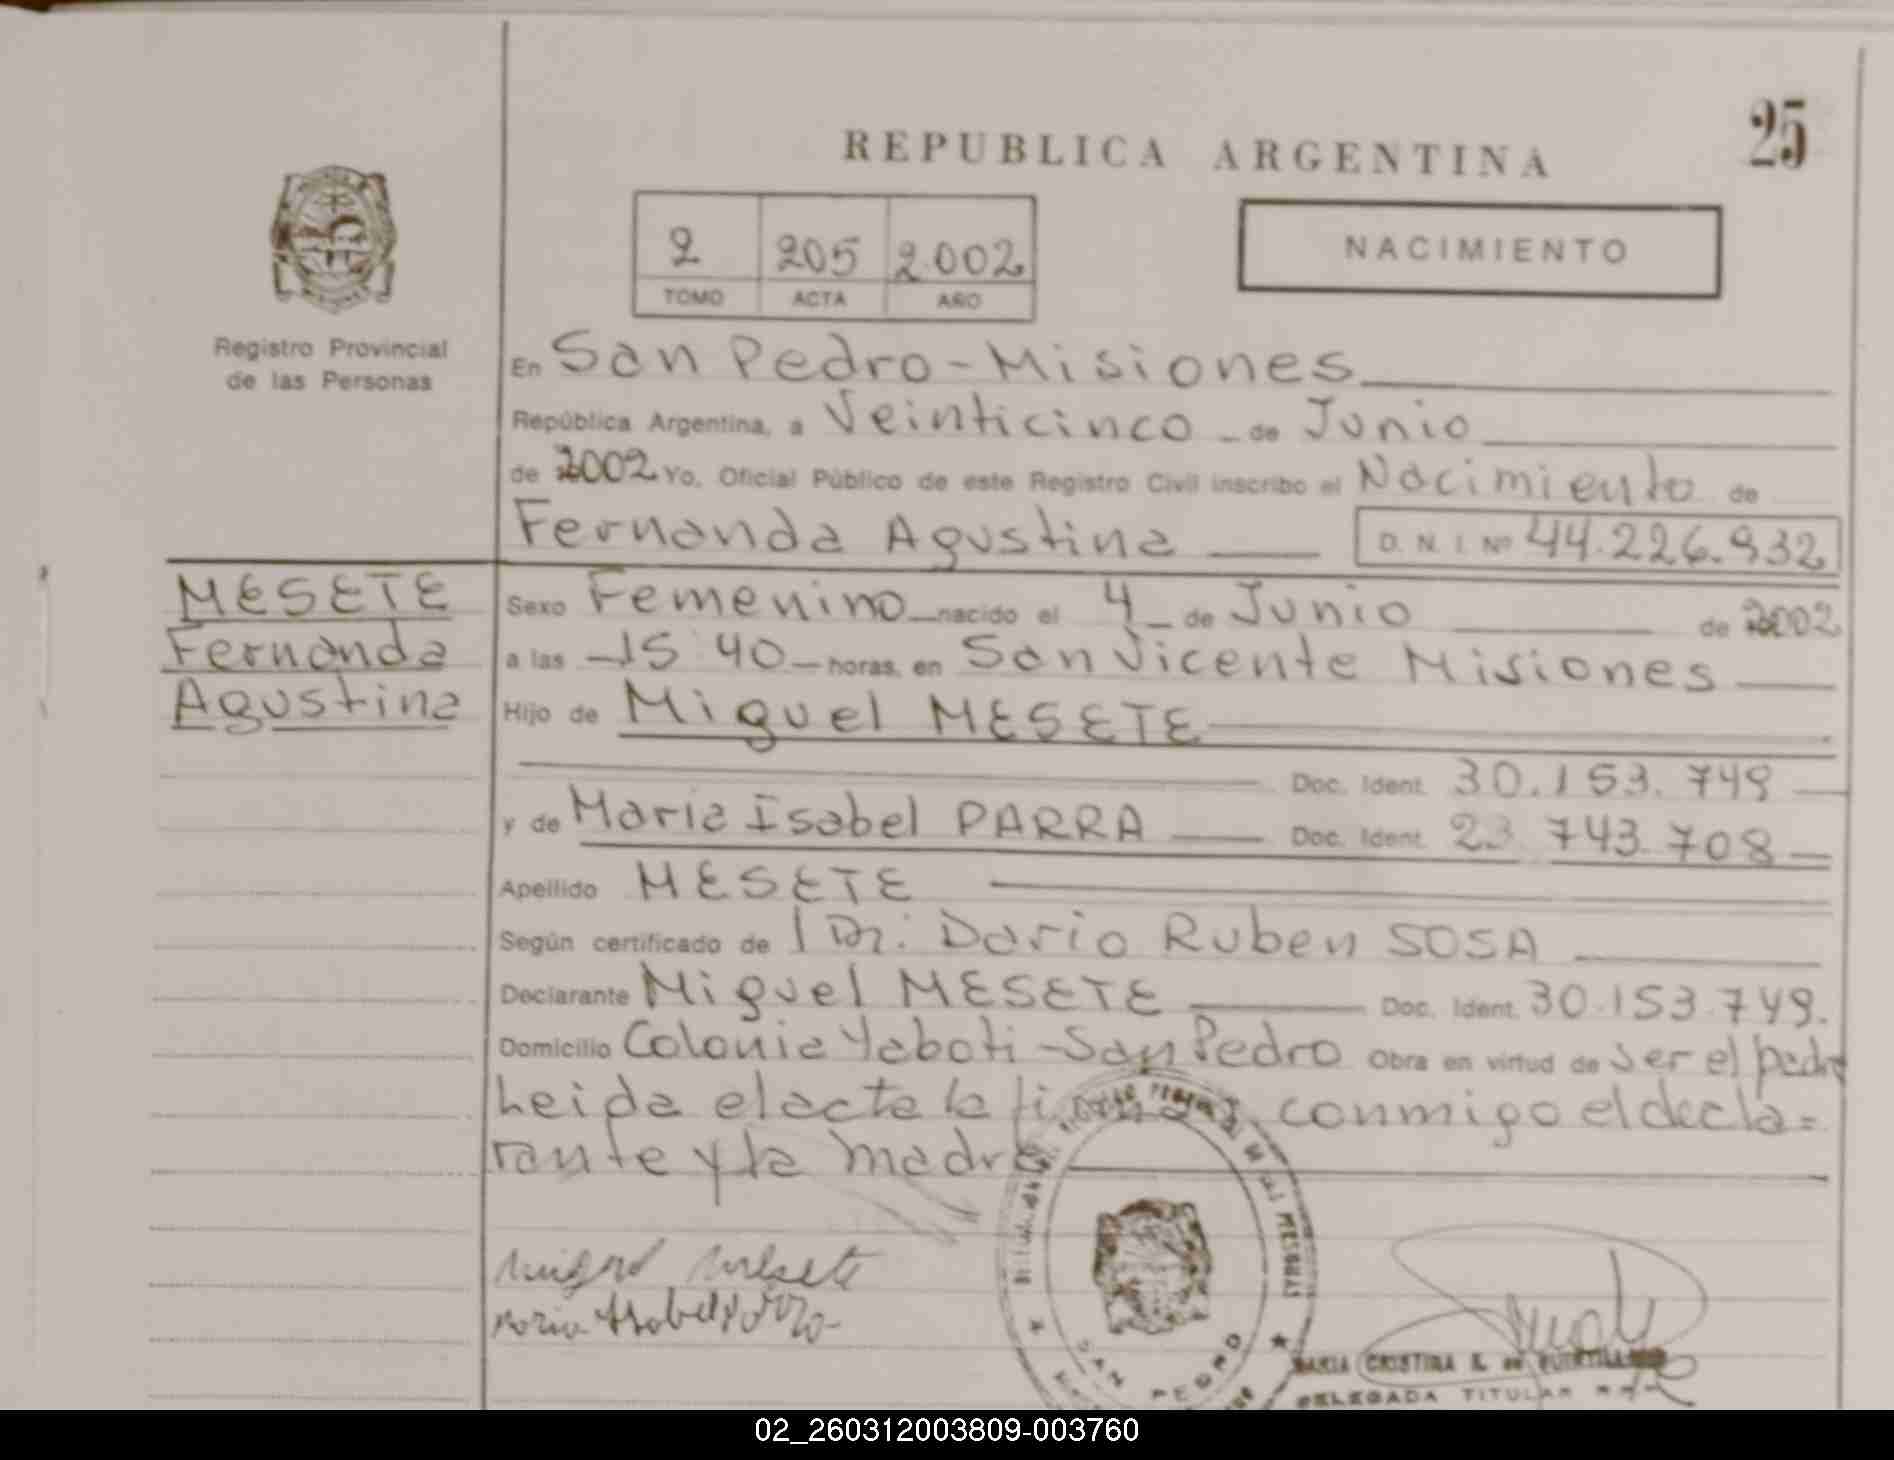 25
REPUBLICA ARGENTINA
2 205 2.002
TOMO ACTA AÑO
NACIMIENTO
Registro Provincial
de las Personas
En San Pedro - Misiones
República Argentina, a Veinticinco - de Junio
de 2002 Yo, Oficial Público de este Registro Civil inscribo el Nacimiento de
Fernanda Agustina D. N. I. Nº 44.226.932
MESETE
Fernanda
Agustina
Sexo Femenino nacido el 4 de Junio de 2002
a las 15 40 horas, en San Vicente Misiones
Hijo de Miguel MESETE
Doc. Ident. 30.153.749
y de Maria Isabel PARRA Doc. Ident. 23.743.708
Apellido MESETE
Según certificado de Dr. Dario Ruben SOSA
Declarante Miguel MESETE Doc. Ident. 30.153.749.
Domicilio Colonia Yaboti - San Pedro Obra en virtud de ser el padre
Leida el acta la conmigo el decla=
rante y la madre
Miguel Mesete
Maria Isabel Parra
SAN PEDRO
MARIA CRISTINA
DELEGADA TITULAR
02_260312003809-003760